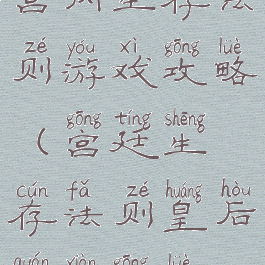 生存法
zé yóu xì gōng lüè
则游戏攻略
gōng tíng shēng
（宫廷生
cún fǎ zé huáng hòu
存法则皇后